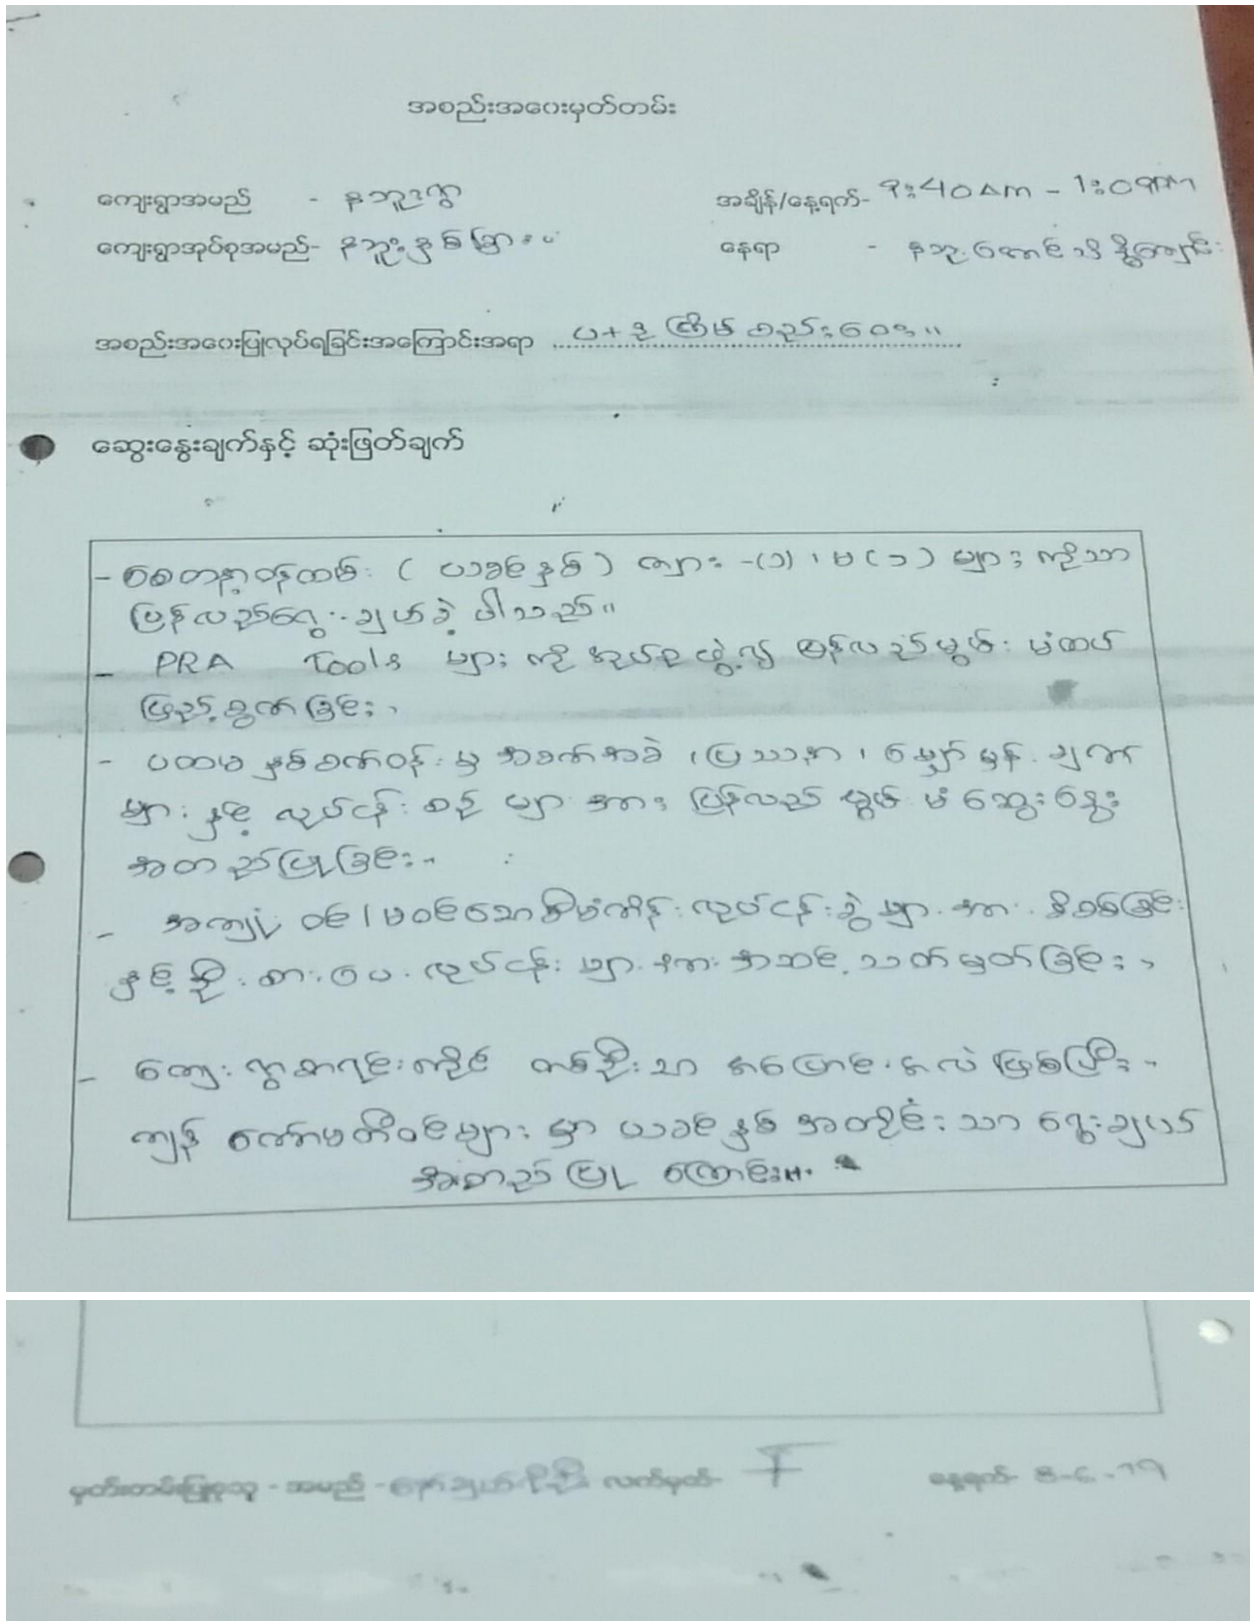 အစည်းအဝေးမှတ်တမ်း
ကျေးရွာအမည် - နဘူးရွာ
အချိန်/နေ့ရက်- 9:40 Am - 1:00 pm
ကျေးရွာအုပ်စုအမည်-
နေရာ -
အစည်းအဝေးပြုလုပ်ရခြင်းအကြောင်းအရာ ပ+ဒု ကြိမ် စည်းဝေး။
ဆွေးနွေးချက်နှင့် ဆုံးဖြတ်ချက်
- စေတနာ့ဝန်ထမ်း (ယခင်နှစ်) ကျား -(၁)၊ မ(၁) များကိုသာ
ပြန်လည်ရွေးချယ်ခဲ့ပါသည်။
- PRA Tools များကို အုပ်စုဖွဲ့၍ ပြန်လည်မွမ်းမံထပ်
ဖြည့်စွက်ခြင်း၊
- ပထမနှစ်စက်ဝန်းမှ အခက်အခဲ၊ ပြဿနာ၊ မျှော်မှန်းချက်
များနှင့် လုပ်ငန်းစဉ်များအား ပြန်လည်မွမ်းမံဆွေးနွေး
အတည်ပြုခြင်း။
- အကျုံးဝင်/မဝင်သောစီမံကိန်းလုပ်ငန်းခွဲများအား စိစစ်ခြင်း
နှင့် ဦးစားပေးလုပ်ငန်းများအား အဆင့်သတ်မှတ်ခြင်း၊
- ကျေးရွာစာရင်းကိုင် တစ်ဦးသာ အပြောင်းအလဲဖြစ်ပြီး၊
ကျန်ကော်မတီဝင်များမှာ ယခင်နှစ်အတိုင်းသာ ရွေးချယ်
အတည်ပြုကြောင်း။
မှတ်တမ်းပြုစုသူ - အမည် - လက်မှတ်-
နေ့ရက်- 8-6-19